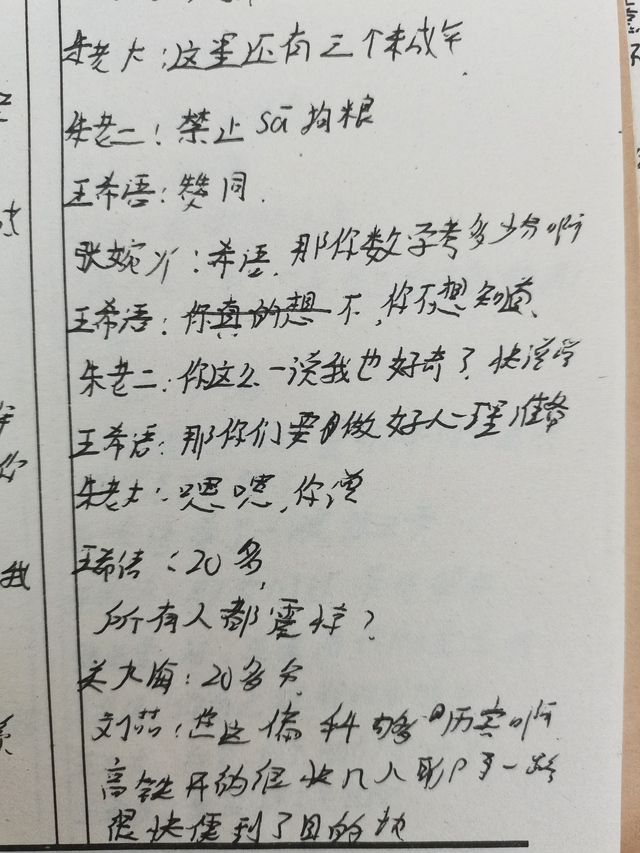 朱老大：这里还有三个未成年
朱老二：禁止sā狗粮
王希语：赞同.
张婉丫：希语，那你数学考多少分啊
王希语：你真的想 不，你不想知道、
朱老二：你这么一说我也好奇了，快说学
王希语：那你们要做好心理准备
朱老大：嗯嗯，你
王希语：20多，
所有人都震惊？
关大海：20多分
刘茹：这偏科够厉害啊
高铁开的很快几人聊了一路
很快便到了目的地
我
你